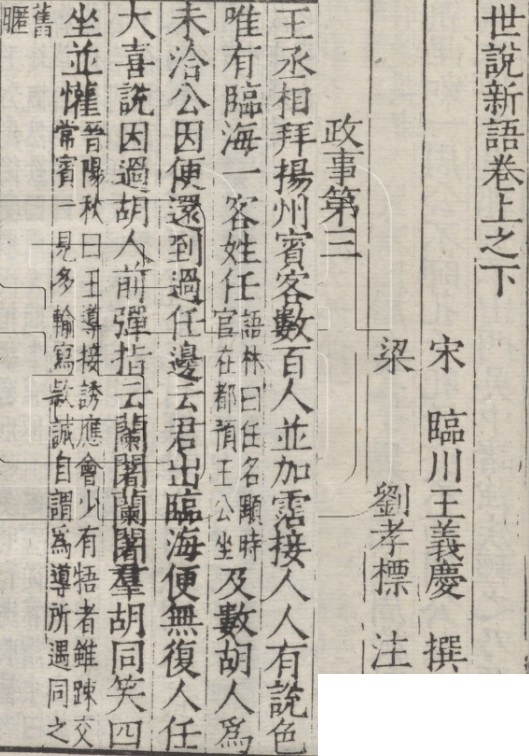 世說新語卷上之下
宋　臨川王義慶　撰
梁　　　劉孝標　注
政事第三
王丞相拜揚州賓客數百人並加霑接人人有說色
唯有臨海一客姓任語林曰任名顒時官在都預王公坐及數胡人爲
未洽公因便還到過任邊云君出臨海便無復人任
大喜說因過胡人前彈指云蘭闍蘭闍羣胡同笑四
坐並懽晉陽秋曰王導接誘應會少有牾者雖踈交常賓一見多輸寫欵誠自謂爲導所遇同之
舊暱